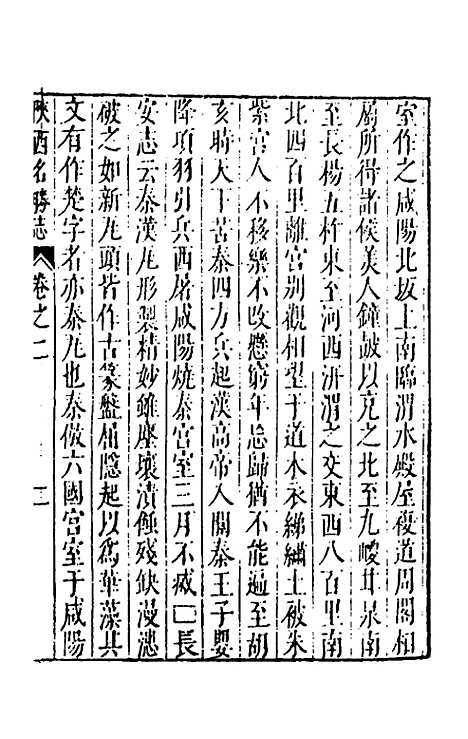 室作之咸陽北坂上南臨渭水殿屋複道周閣相
屬所得諸侯美人鐘皷以充之北至九嵕甘泉南
至長楊五柞東至河西汧渭之交東西八百里南
北四百里離宮別觀相望于道木衣綈繡土被朱
紫宮人不移樂不改懸窮年忘歸猶不能遍至胡
亥時天下苦秦四方兵起漢高帝入關秦王子嬰
降項羽引兵西屠咸陽燒秦宮室三月不㓕 長
安志云秦漢瓦形製精妙雖塵壤漬蝕殘缺漫漶
破之如新瓦頭皆作古篆盤相隱起以爲華藻其
文有作楚字者亦秦瓦也秦倣六國宮室于咸陽
陜西名勝志 卷之二